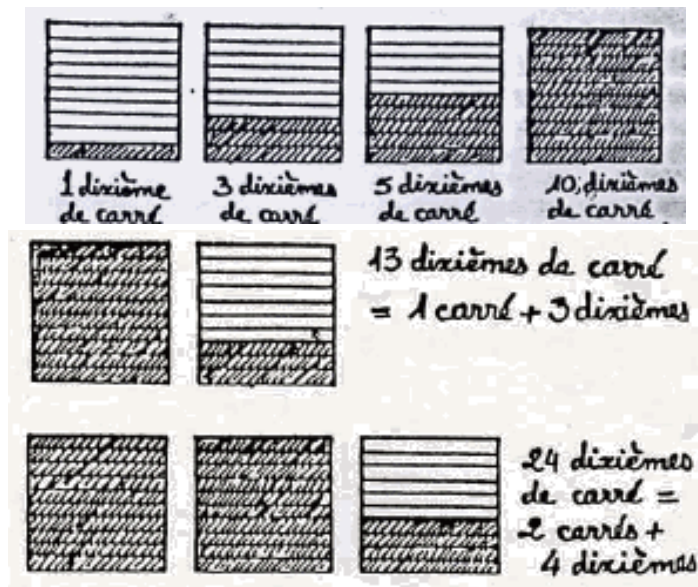 1 dixième
de carré
3 dixièmes
de carré
5 dixièmes
de carré
10 dixièmes
de carré
13 dixièmes de carré
= 1 carré + 3 dixièmes
24 dixièmes
de carré =
2 carrés +
4 dixièmes